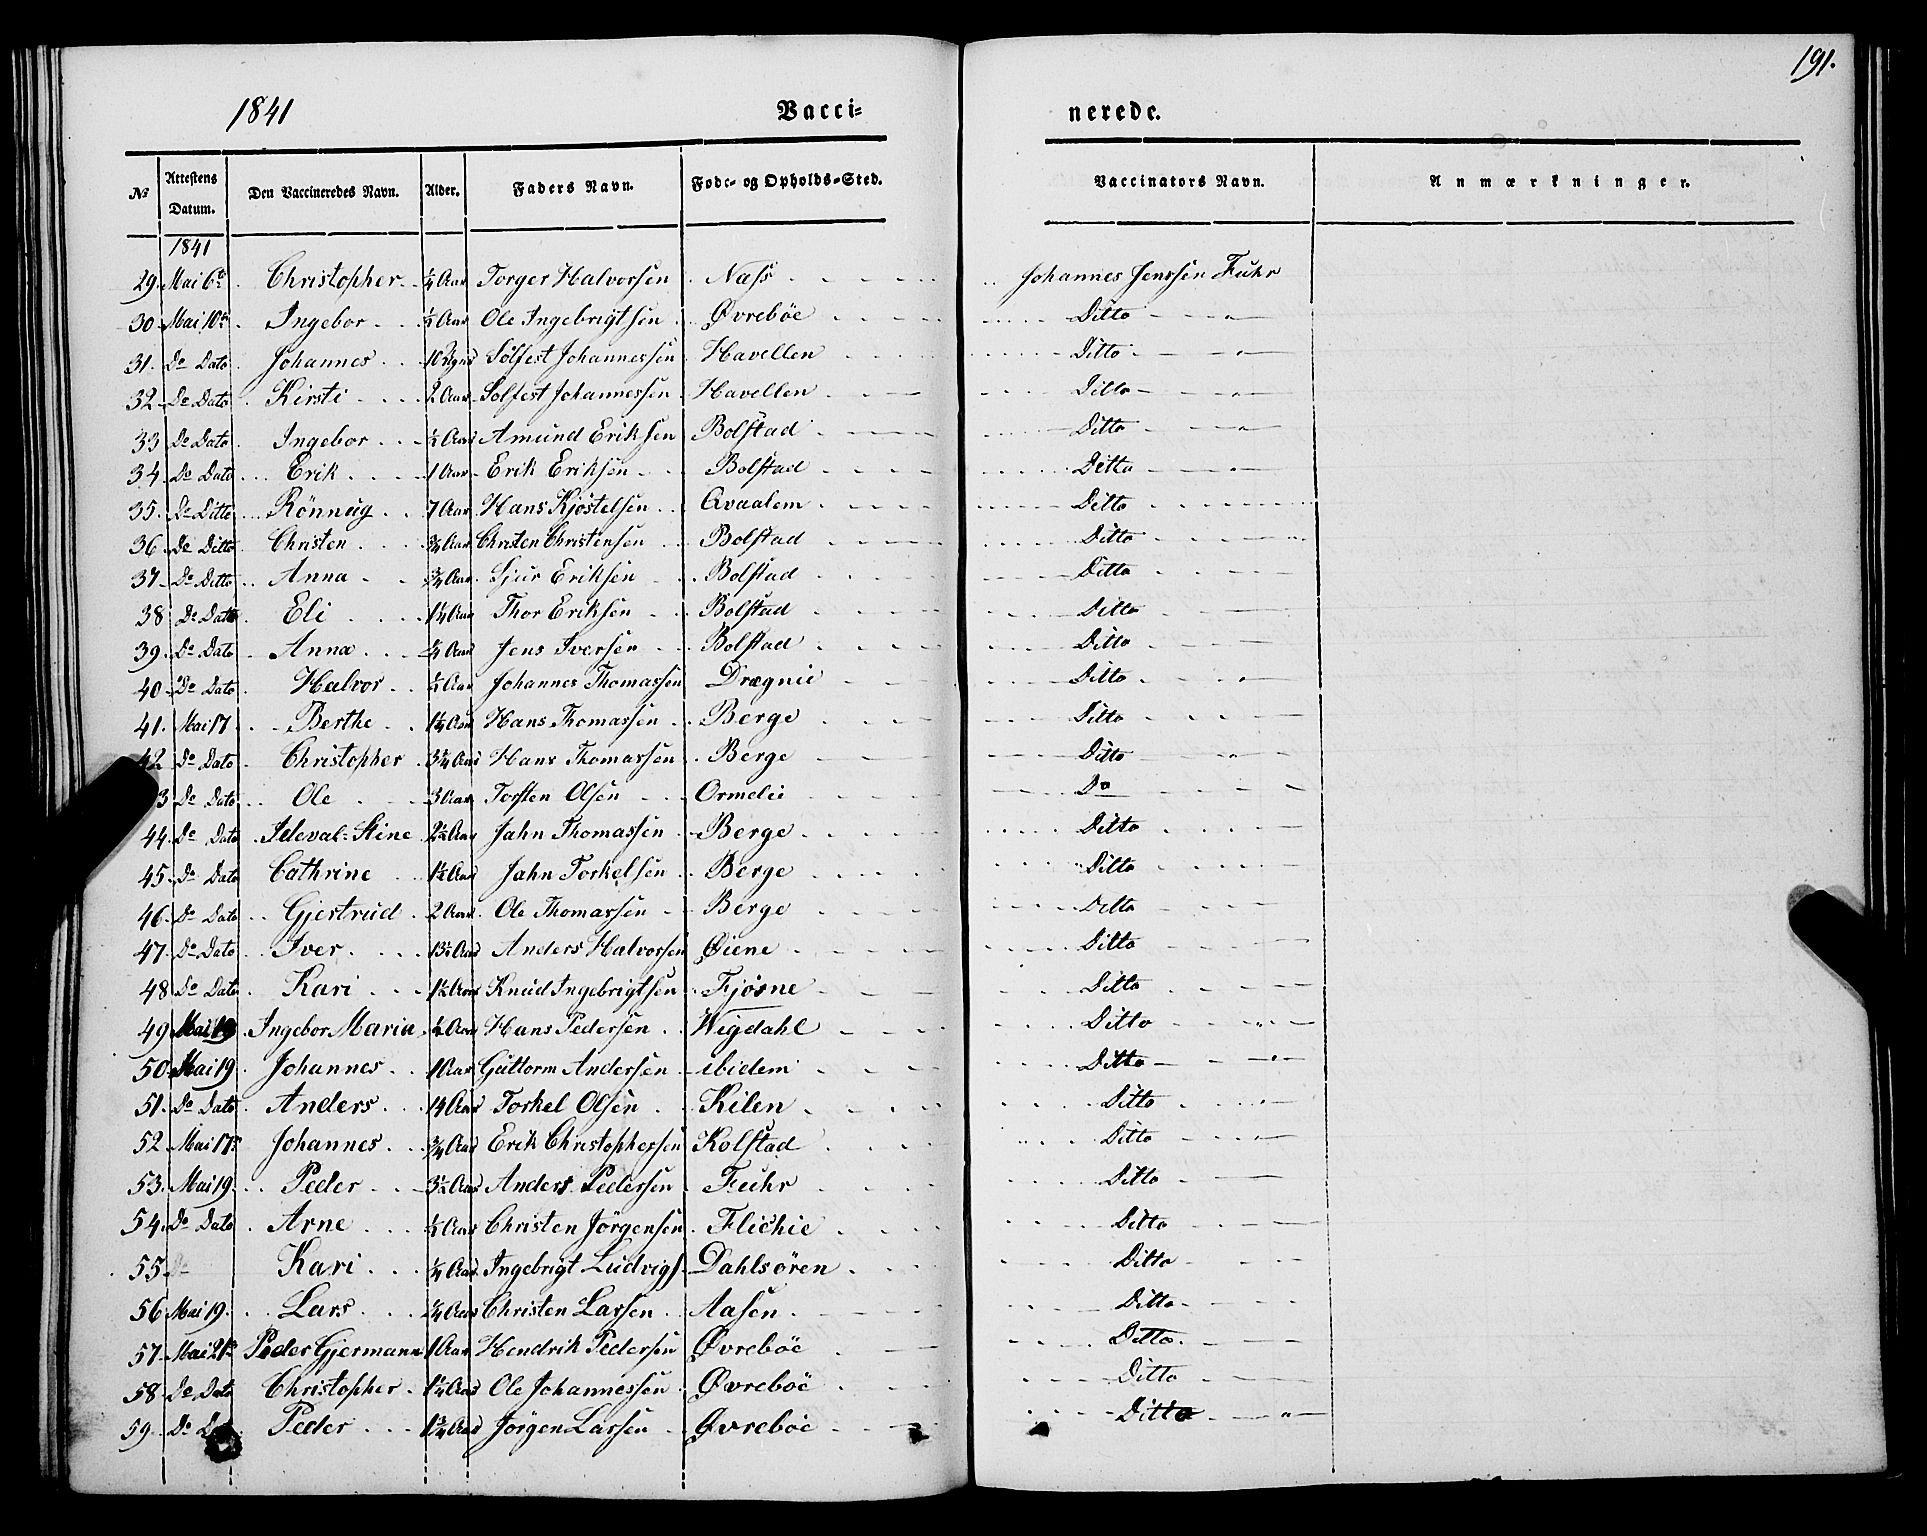 191.
1841 Vacci- nerede.
No Attestens Datum. Den Vaccineredes Navn. Alder. Faders Navn. Føde- og Opholds-Sted. Vaccinators Navn. Anmærkninger.
1841
29. Mai 6te Christopher ¼ Aar Torger Halvorsen Næss Johannes Jenssen Fuhr
30. Mai 10de Ingebor Aar Ole Ingebrigtsen Øvrebøe Ditto
31. Do Dato Johannes 10 Solfest Johannessen Havellen Ditto
32. Do Dato Kirsti 2 Aar Solfest Johannessen Havellen Ditto
33 Do Dato Ingebor Aar Amund Eriksen Bolstad Ditto
34. Do Dato Erik 1 Aar Erik Eriksen Bolstad Ditto
35. Do Ditto Rönnug 7 Aar Hans Kjöstelsen Qvaalem Ditto
36 Do Ditto Christen ¾ Aar Christen Christensen Bolstad Ditto
37. Do Ditto Anna ¾ Aar Sjur Eriksen Bolstad Ditto
38 Do Dato Eli 1¼ Aar Thor Eriksen Bolstad Ditto
39. Do Dato Anna Aar Jens Iversen Bolstad Ditto
40 Do Dato Halvor Aar Johannes Thomassen Drægnie Ditto
41. Mai 17 Berthe 1¼ Aar Hans Thomassen Berge Ditto
42 Do Dato Christopher 3¼ Aar Hans Thomassen Berge Ditto
3 Do Dato Ole 3 Aar Torsten Olsen Ormelie Do
44. Do Dato Ideval-Stine 2½ Aar Jahn Thomassen Berge Ditto
45. Do Dato Cathrine 1½ Aar Jahn Torkelsen Berge Ditto
46. Do Dato Gjertrud 2 Aar Ole Thomassen Berge Ditto
47. Do Dato Iver Aar Anders Halvorsen Øiene Ditto
48 Do Dato Kari 1½ Aar Knud Ingebrigtsen Fjøsne Ditto
49. Mai 19 Ingebor Maria Aar Hans Pedersen Wigdahl Ditto
50. Mai 19. Johannes 1 Aar Guttorm Andersen ibidem Ditto
51. Do Dato Anders Aar Torkel Olsen Kilen Ditto
52 Mai 17de Johannes ¾ Aar Erik Christophersen Kolstad Ditto
53. Mai 19. Peder 3½ Aar Anders Pedersen Fuhr Ditto
54. Do Dato Arne Aar Christen Jörgensen Flichie Ditto
55. Do Kari ¼ Aar Ingebrigt Ludvigs. Dahlsören Ditto
56 Mai 19. Lars ¼ Aar Christen Larsen Aasen Ditto
57. Mai 21de Peder Gjermann 1 Aar Hendrik Pedersen Øvrebøe Ditto
58 Do Dato Christopher 1¼ Aar Ole Johannessen Øvrebøe Ditto
59. Do Peder 1¾ Aar Jörgen Larsen Øvrebøe Ditto